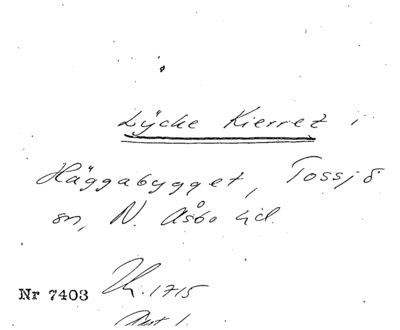 Lÿcke Kierret i
Häggabygget, Tossjö
sn, N. Åsbo hd.
Nr 7403
1715